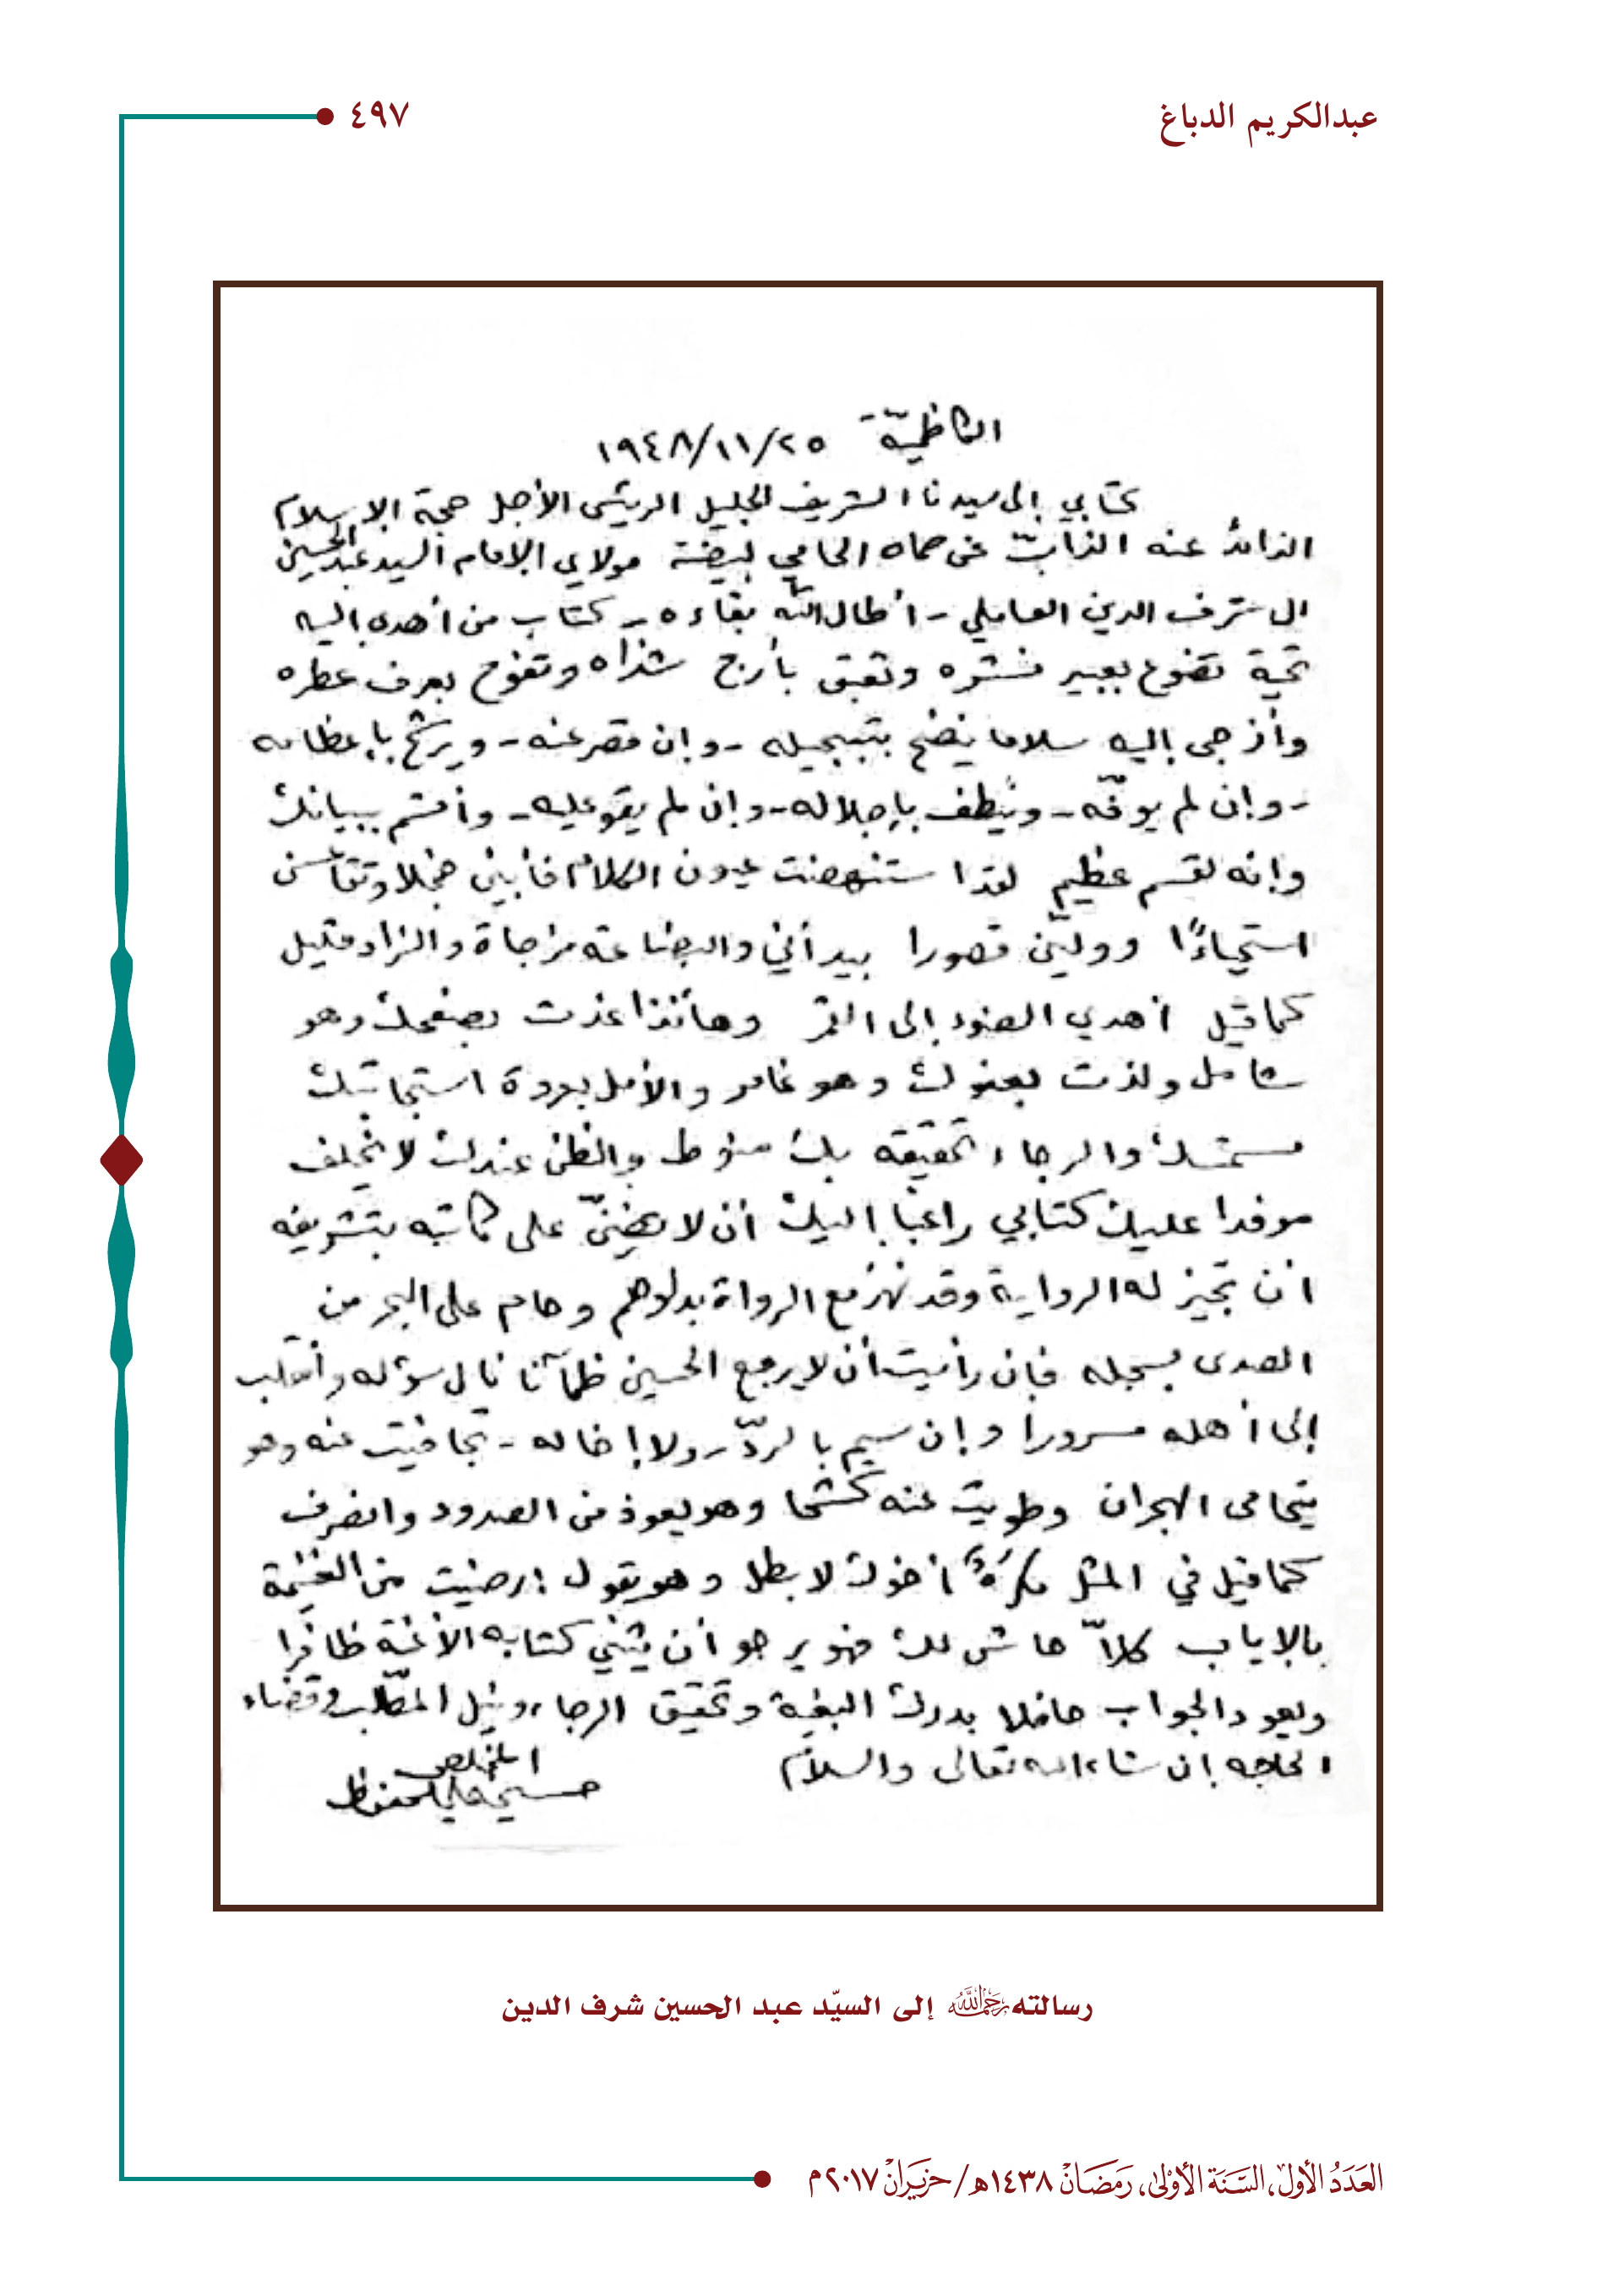 عبدالكريم الدباغ ٤٩٧
الكاظميّة ٢٥/١١/١٩٤٨
كتابي إلى سيدنا الشريف الجليل الرئيس الأجل حجة الإسلام
الذائد عنه الذابّ عن حماه الحامي لبيضته مولاي الإمام السيد عبد الحسين
ال شرف الدين العاملي - أطال الله بقاءه - كتاب من أهدى إليه
تحية تضوع بعبير نشره وتعبق بأرج شذاه وتفوح بعرف عطره
وأزجى إليه سلاما ينضح بتبجيله - وإن قصر عنه - ويرشح بإعظامه
- وإن لم يوفّه - وينطف بإجلاله - وإن لم يقو عليه - وأقسم ببيانك
وإنه لقسم عظيم لقد استنهضت عيون الكلام فأبين خجلا وتقاعسن
استحياءً وولّين قصورا بيد أني والبضاعة مزجاة والزاد قليل
كما قيل أهدي الضوء إلى القمر وهأنذا عذت بصفحك وهو
شامل ولذت بعفوك وهو غامر والأمل بعروة استجابتك
مستمسك والرجاء تحقيقه بك منوط والظن عندك لا يخلف
موفدا عليك كتابي راغبا إليك أن لا يضننّ على كاتبه بتشريفه
أن تجيز له الرواية وقد نهز مع الرواة بدلوهم وحام على البحر من
الصدى بسجله فإن رأيت أن لا يرجع الحسين ظمآنا نال سؤله وأنقلب
إلى أهله مسرورا وإن سيم بالردّ - ولا إخاله - تجافيت عنه وهو
يتحامى الهجران وطويت عنه كشحا وهو يعوذ من الصدود وانصرف
كما قيل في المثل مكرهٌ أخوك لا بطل وهو يقول : رضيت من الغنيمة
بالإياب كلاّ حاش لك فهو يرجو أن يثني كتابه الأعنة ظافرا
ويعود الجواب حافلا بدرك البغية وتحقيق الرجاء ونيل المطّلب وقضاء
الحاجه إن شاء الله تعالى والسلام المخلص
حسين علي محفوظ
رسالته رحمه الله إلى السيّد عبد الحسين شرف الدين
العَدَدُ الأول، السَّنَة الأوْلى، رَمَضَانْ ١٤٣٨هـ/حزيرانْ ٢٠١٧م